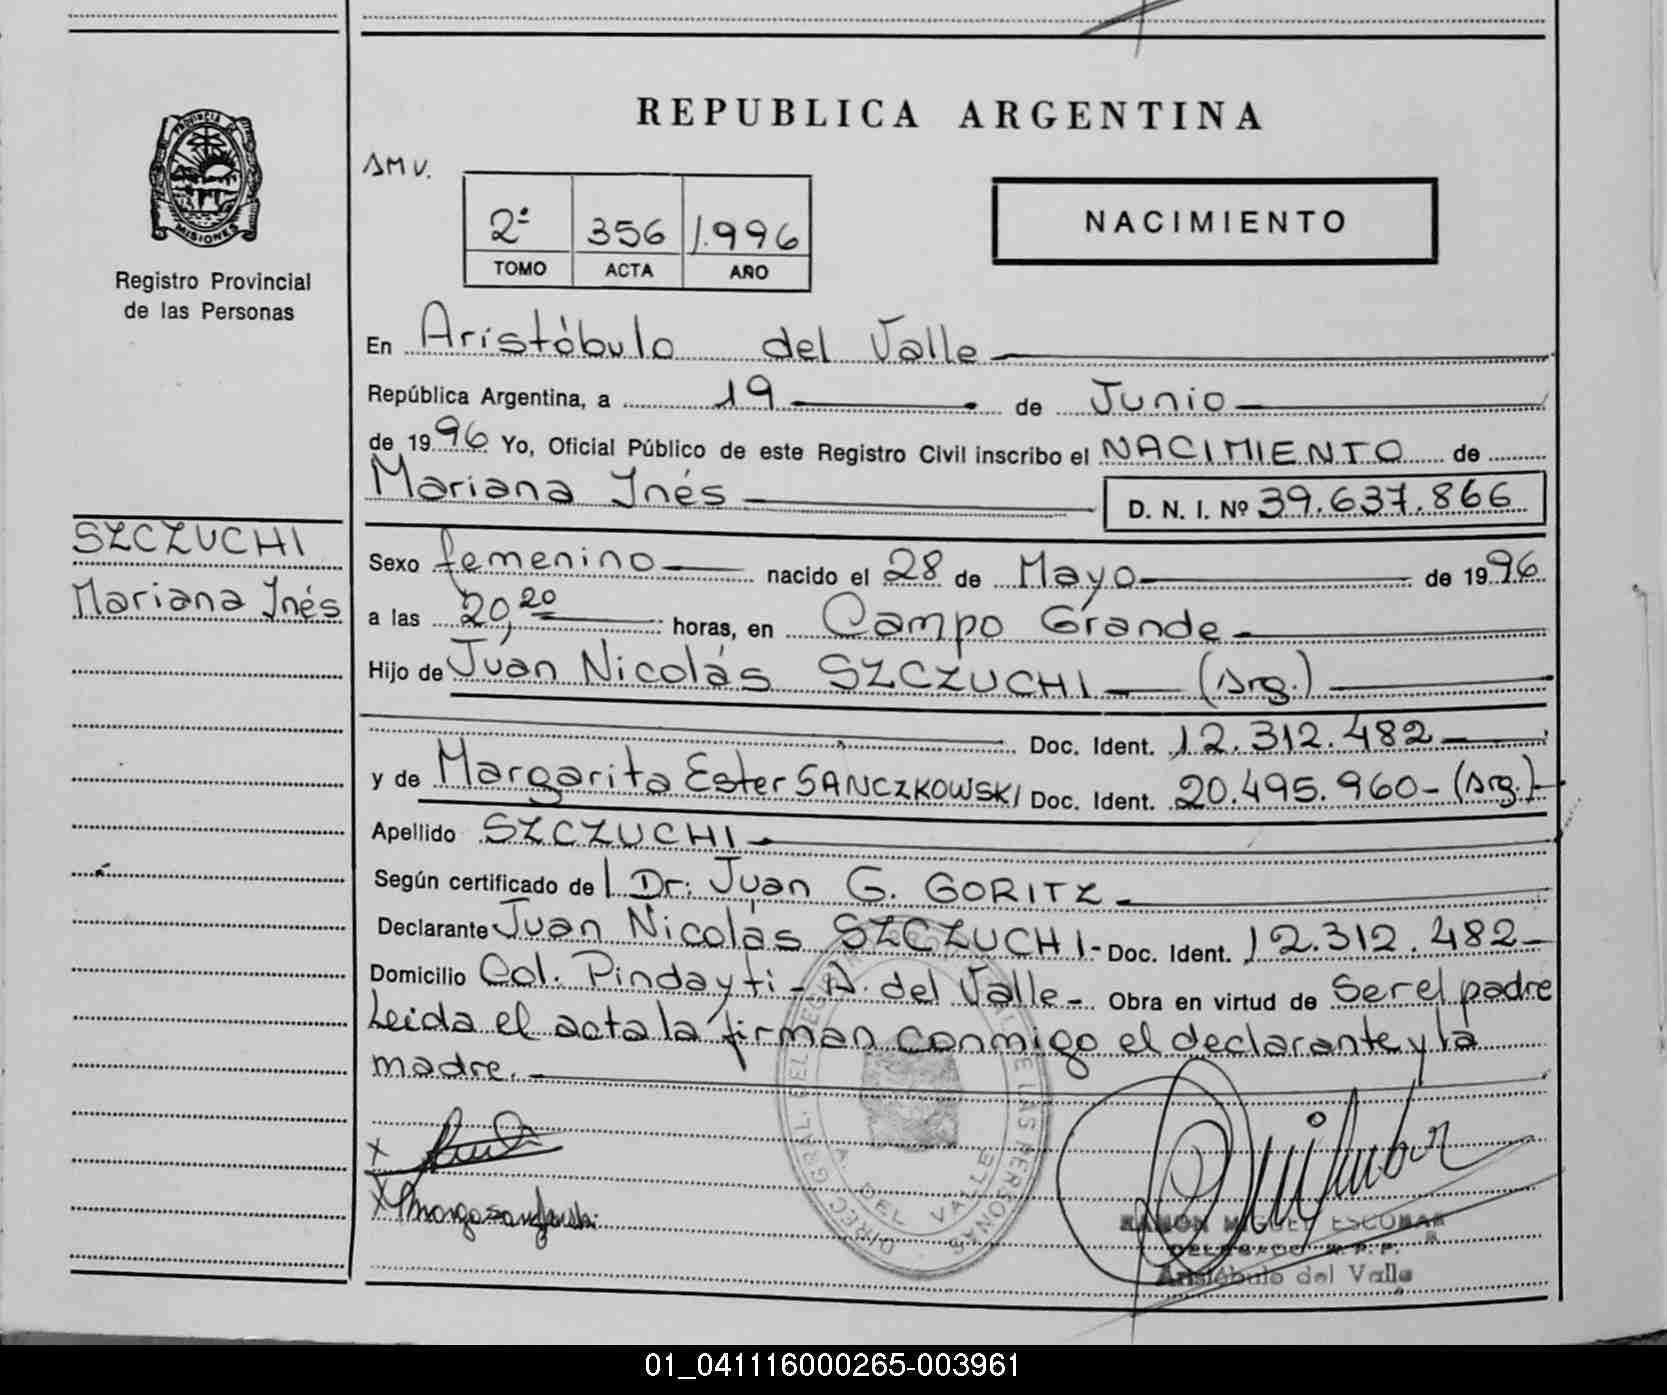 REPUBLICA ARGENTINA
AMV.
2ª 356 1.996
TOMO ACTA AÑO
NACIMIENTO
PROVINCIA DE MISIONES
Registro Provincial
de las Personas
SZCZUCHI
Mariana Inés
En Aristóbulo del Valle
República Argentina, a 19 de Junio
de 1996 Yo, Oficial Público de este Registro Civil inscribo el NACIMIENTO de
Mariana Inés D. N. I. Nº 39.637.866
Sexo femenino nacido el 28 de Mayo de 1996
a las 20,20 horas, en Campo Grande
Hijo de Juan Nicolás SZCZUCHI (Arg.)
Doc. Ident. 12.312.482
y de Margarita Ester SANCZKOWSKI Doc. Ident. 20.495.960-(Arg.)
Apellido SZCZUCHI
Según certificado de l Dr: Juan G. GORITZ
Declarante Juan Nicolás SZCZUCHI- Doc. Ident. 12.312.482
Domicilio Col. Pindayti - A. del Valle- Obra en virtud de Ser el padre
Leida el acta la firman conmigo el declarante y la
madre.
DIREC. GRAL. DEL REGISTRO PROVINCIAL DE LAS PERSONAS
A. DEL VALLE
RAMON MIGUEL ESCOBAR
DELEGADO R.P.P.
Aristóbulo del Valle
01_041116000265-003961